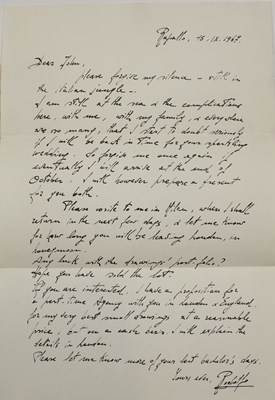 Rapallo, 15.IX.1967.
Dear John,
please forgive my silence - still in
the italian jungle -
I am still at the sea & the complications
here, with me, with my family, & elsewhere
are so many, that I start to doubt seriously
if I will be back in time for your
wedding. So forgive me once again if
eventually I will arrive at the end of
October. I will however prepare a present
for you both.
Please write to me in Milan, where I shall
return in the next few days, & let me know
for how long you will be leaving London, in
honeymoon.
Any luck with the drawings' portfolio?
Hope you have sold the lot.
If you are interested, I have a proposition for
a part-time Agency with you in London & England,
for my very best small drawings at a reasonable
price, but on a basis. I will explain the
details in London.
Please let me know more of your last bachelor's days.
Yours ever,